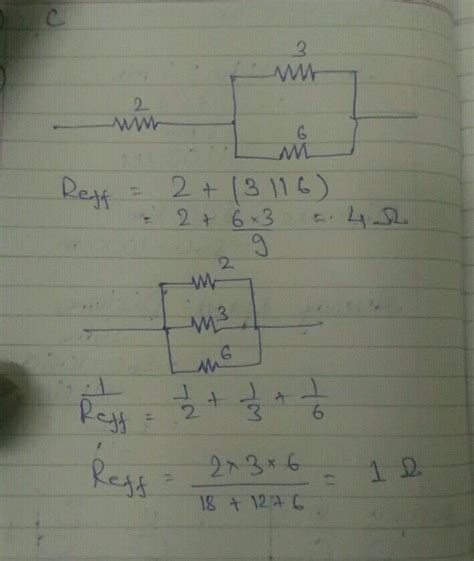 C
3
2
6
Reff = 2 + (3 || 6)
= 2 + 6×3 = 4 Ω
9
2
3
6
1/Reff = 1/2 + 1/3 + 1/6
Reff = 2×3×6 / 18 + 12+6 = 1 Ω